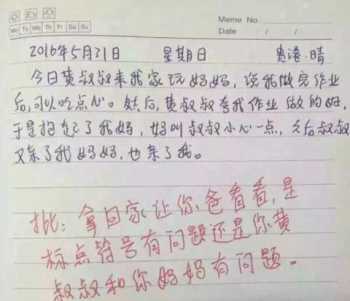 Memo No.
Mo Tu We Th Fr Sa Su
Date / /
2016年5月21日 星期日 晴
今日黄叔叔来我家玩妈妈,说我做完作业
后,可以吃点心。然后,黄叔叔看我作业做的好,
于是抱起了我妈,妈叫叔叔小心一点,之后叔叔
又亲了我妈妈,也亲了我。
批:拿回家让你爸看看,是
标点符号有问题还是你黄
叔叔和你妈妈有问题。